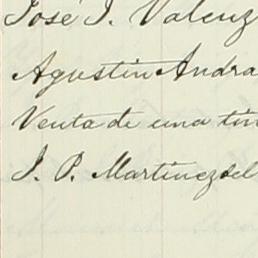 José J. Valenz
Agustin Andra
Venta de una tin
J. P. Martinez del